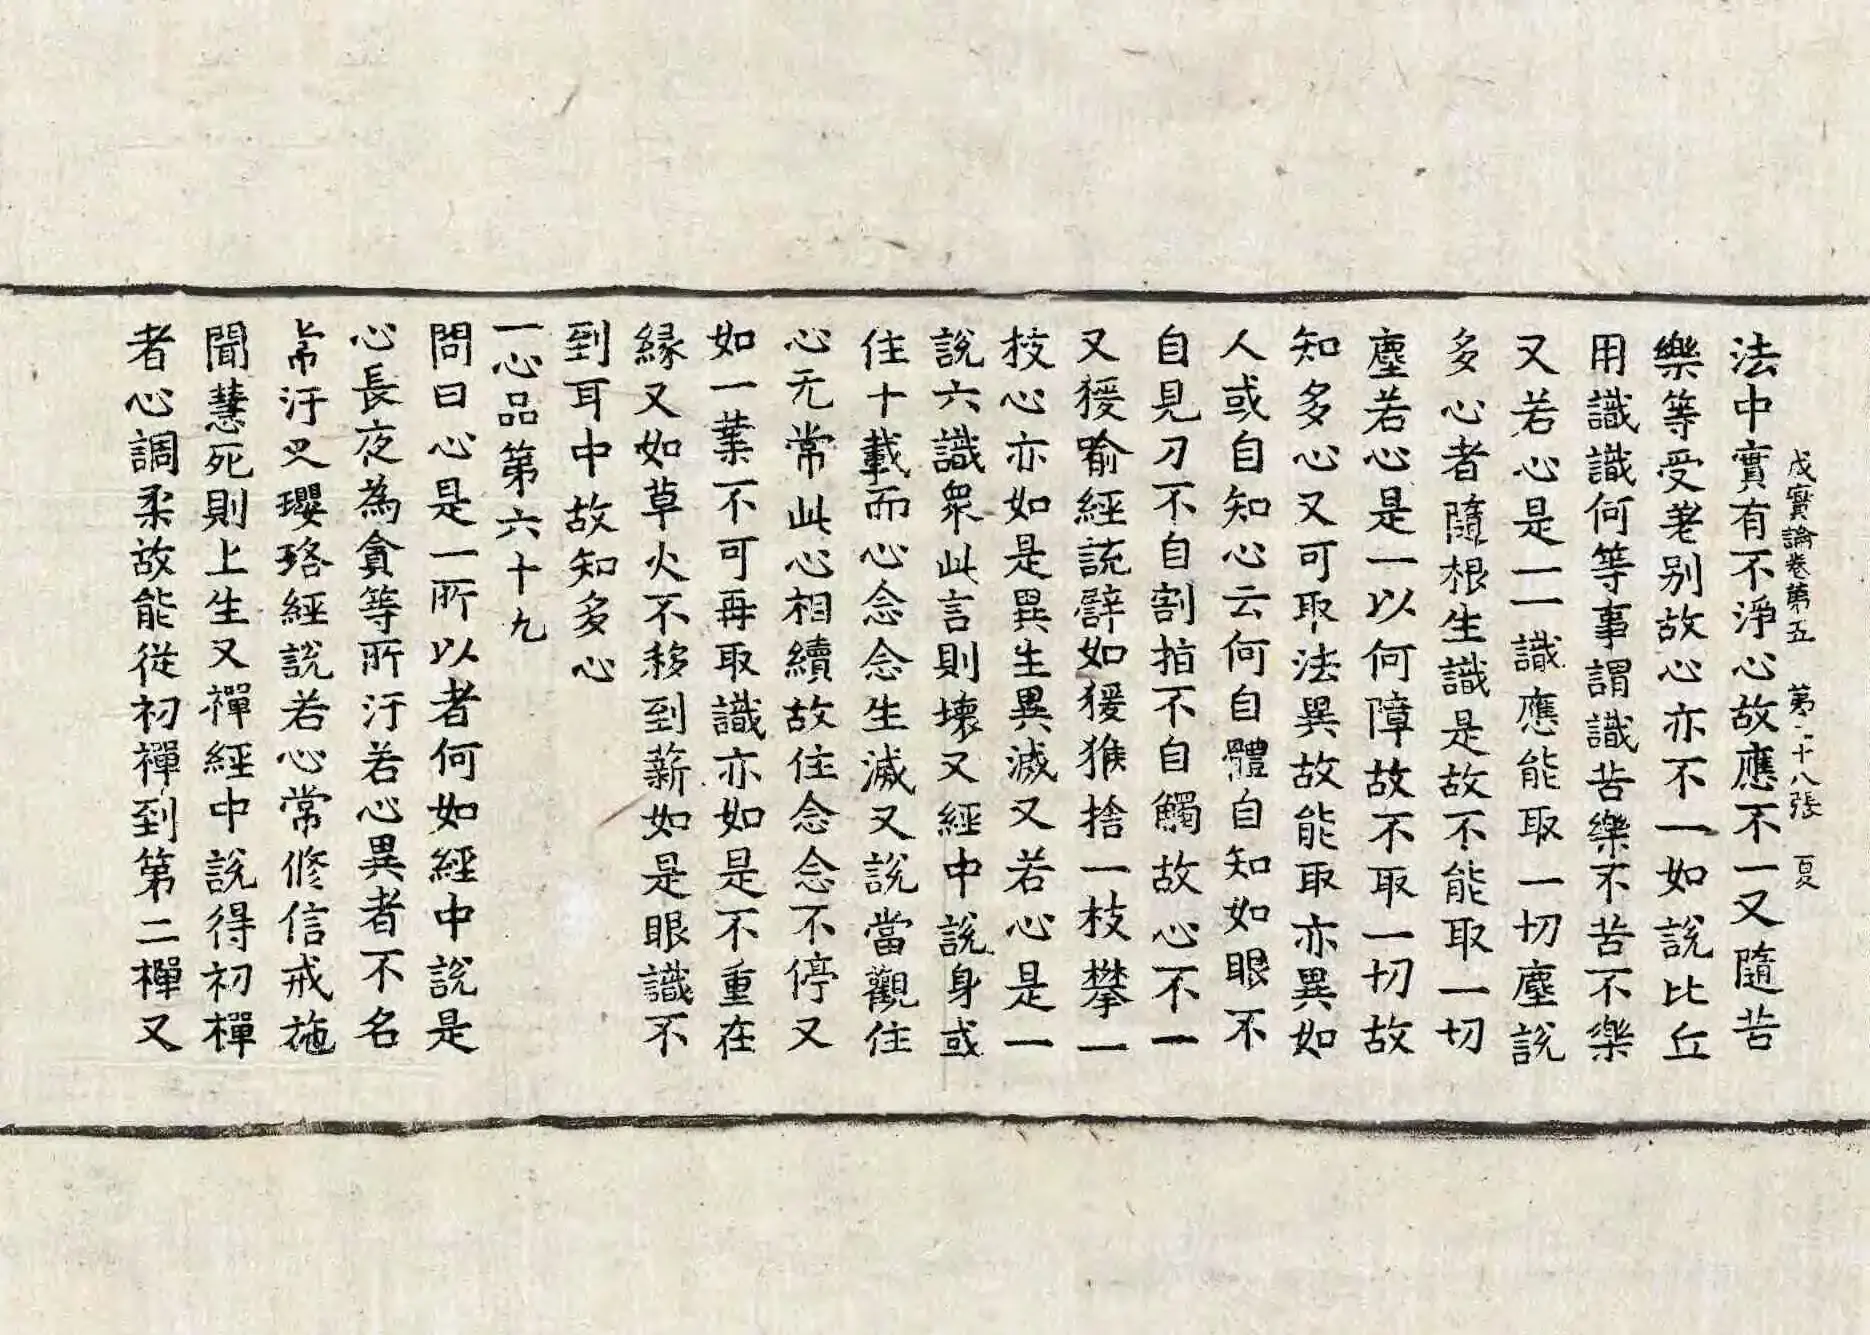 成實論卷第五 第二十八張 夏
法中實有不淨心故應不一又隨苦
樂等受差别故心亦不一如說比丘
用識識何等事謂識苦樂不苦不樂
又若心是一一識應能取一切塵說
多心者隨根生識是故不能取一切
塵若心是一以何障故不取一切故
知多心又可取法異故能取亦異如
人或自知心云何自體自知如眼不
自見刀不自割指不自觸故心不一
又猨喻經說辟如猨猴捨一枝攀一
枝心亦如是異生異滅又若心是一
說六識衆此言則壞又經中說身或
住十載而心念念生滅又說當觀住
心无常此心相續故住念念不停又
如一業不可再取識亦如是不重在
緣又如草火不移到薪如是眼識不
到耳中故知多心
一心品第六十九
問曰心是一所以者何如經中說是
心長夜為貪等所汙若心異者不名
常汙又瓔珞經說若心常修信戒施
聞慧死則上生又禪經中說得初禪
者心調柔故能從初禪到第二禪又